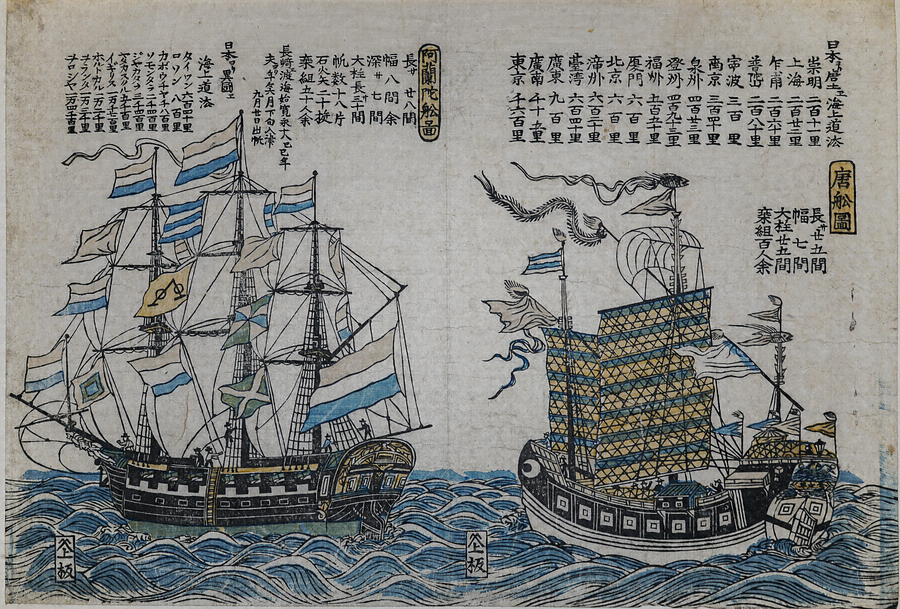 日本ヨリ唐土エ海上道法
崇明 二百十里
上海 二百廿里
乍甫 二百六十里
普陀 二百八十里
寧波 三百里
南京 三百四十里
泉州 四百廿里
登州 四百九十三里
福州 五百五十里
厦門 六百里
北京 六百里
漳州 六百廿里
臺湾 六百四十里
廣東 九百里
廣南 千四百里
東京 千六百里
唐舩圖
長サ廿五間
幅 七間
大柱廿五間
乗組百人余
阿蘭陀舩圖
長サ廿八間
幅 八間余
深サ 七間
大柱長三十間
帆数十八片
石火矢二十挺
乗組五十人余
長崎渡海始寛永十八辛巳年
九月廿日出帆
日本ヨリ異國エ
海上道法
タイワン 六百四十里
ロソン 八百里
カボウチヤ 千八百里
ソモンタラ 二千四百里
ジヤカタラ 三千四百里
イギリス 一万千七百里
ヲランダ 一万二千九百里
ヲロシヤ 一万四千里
板
板